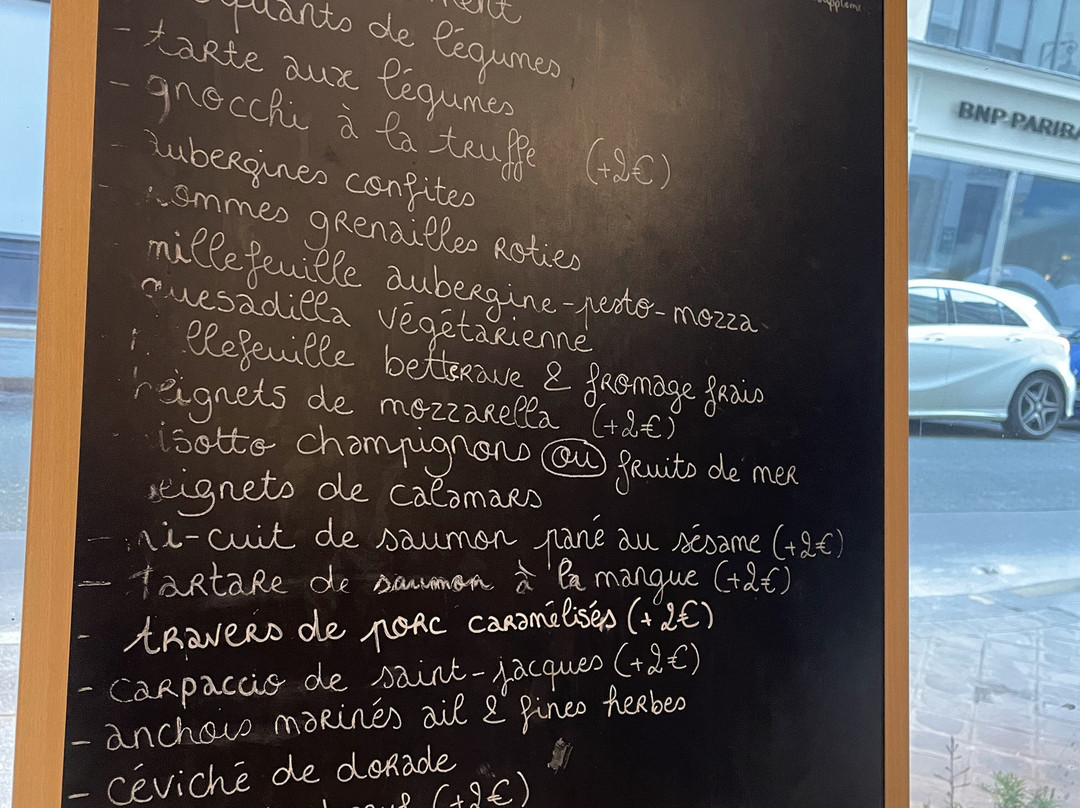 de légumes
- tarte aux légumes
- gnocchi à la truffe (+2€)
- aubergines confites
- ommes grenailles roties
millefeuille aubergine-pesto-mozza
quesadilla végétarienne
llefeuille betterave & fromage frais
beignets de mozzarella (+2€)
isotto champignons ou fruits de mer
eignets de calamars
- mi-cuit de saumon pané au sésame (+2€)
- Tartare de saumon à la mangue (+2€)
- travers de porc caramélisés (+2€)
- carpaccio de saint-jacques (+2€)
- anchois marinés ail & fines herbes
- céviché de dorade
(+2€)
BNP PARIBA